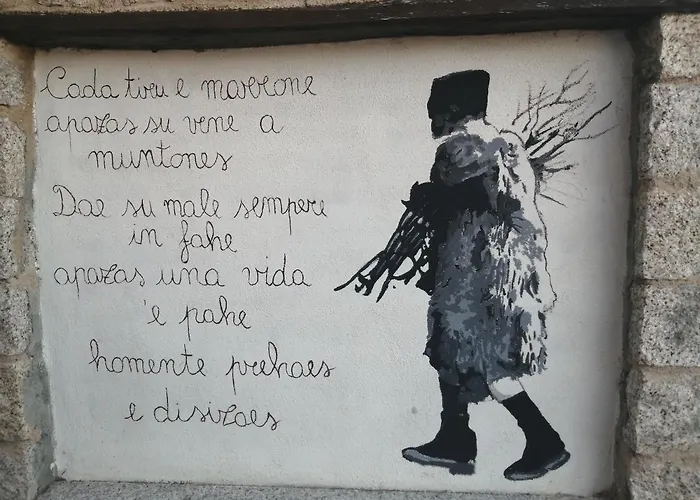 Cada tiru e marrone
apazas su vene a
muntones
Dae su male sempere
in fahe
apazas una vida
'e pahe
homente prehaes
e disizaes